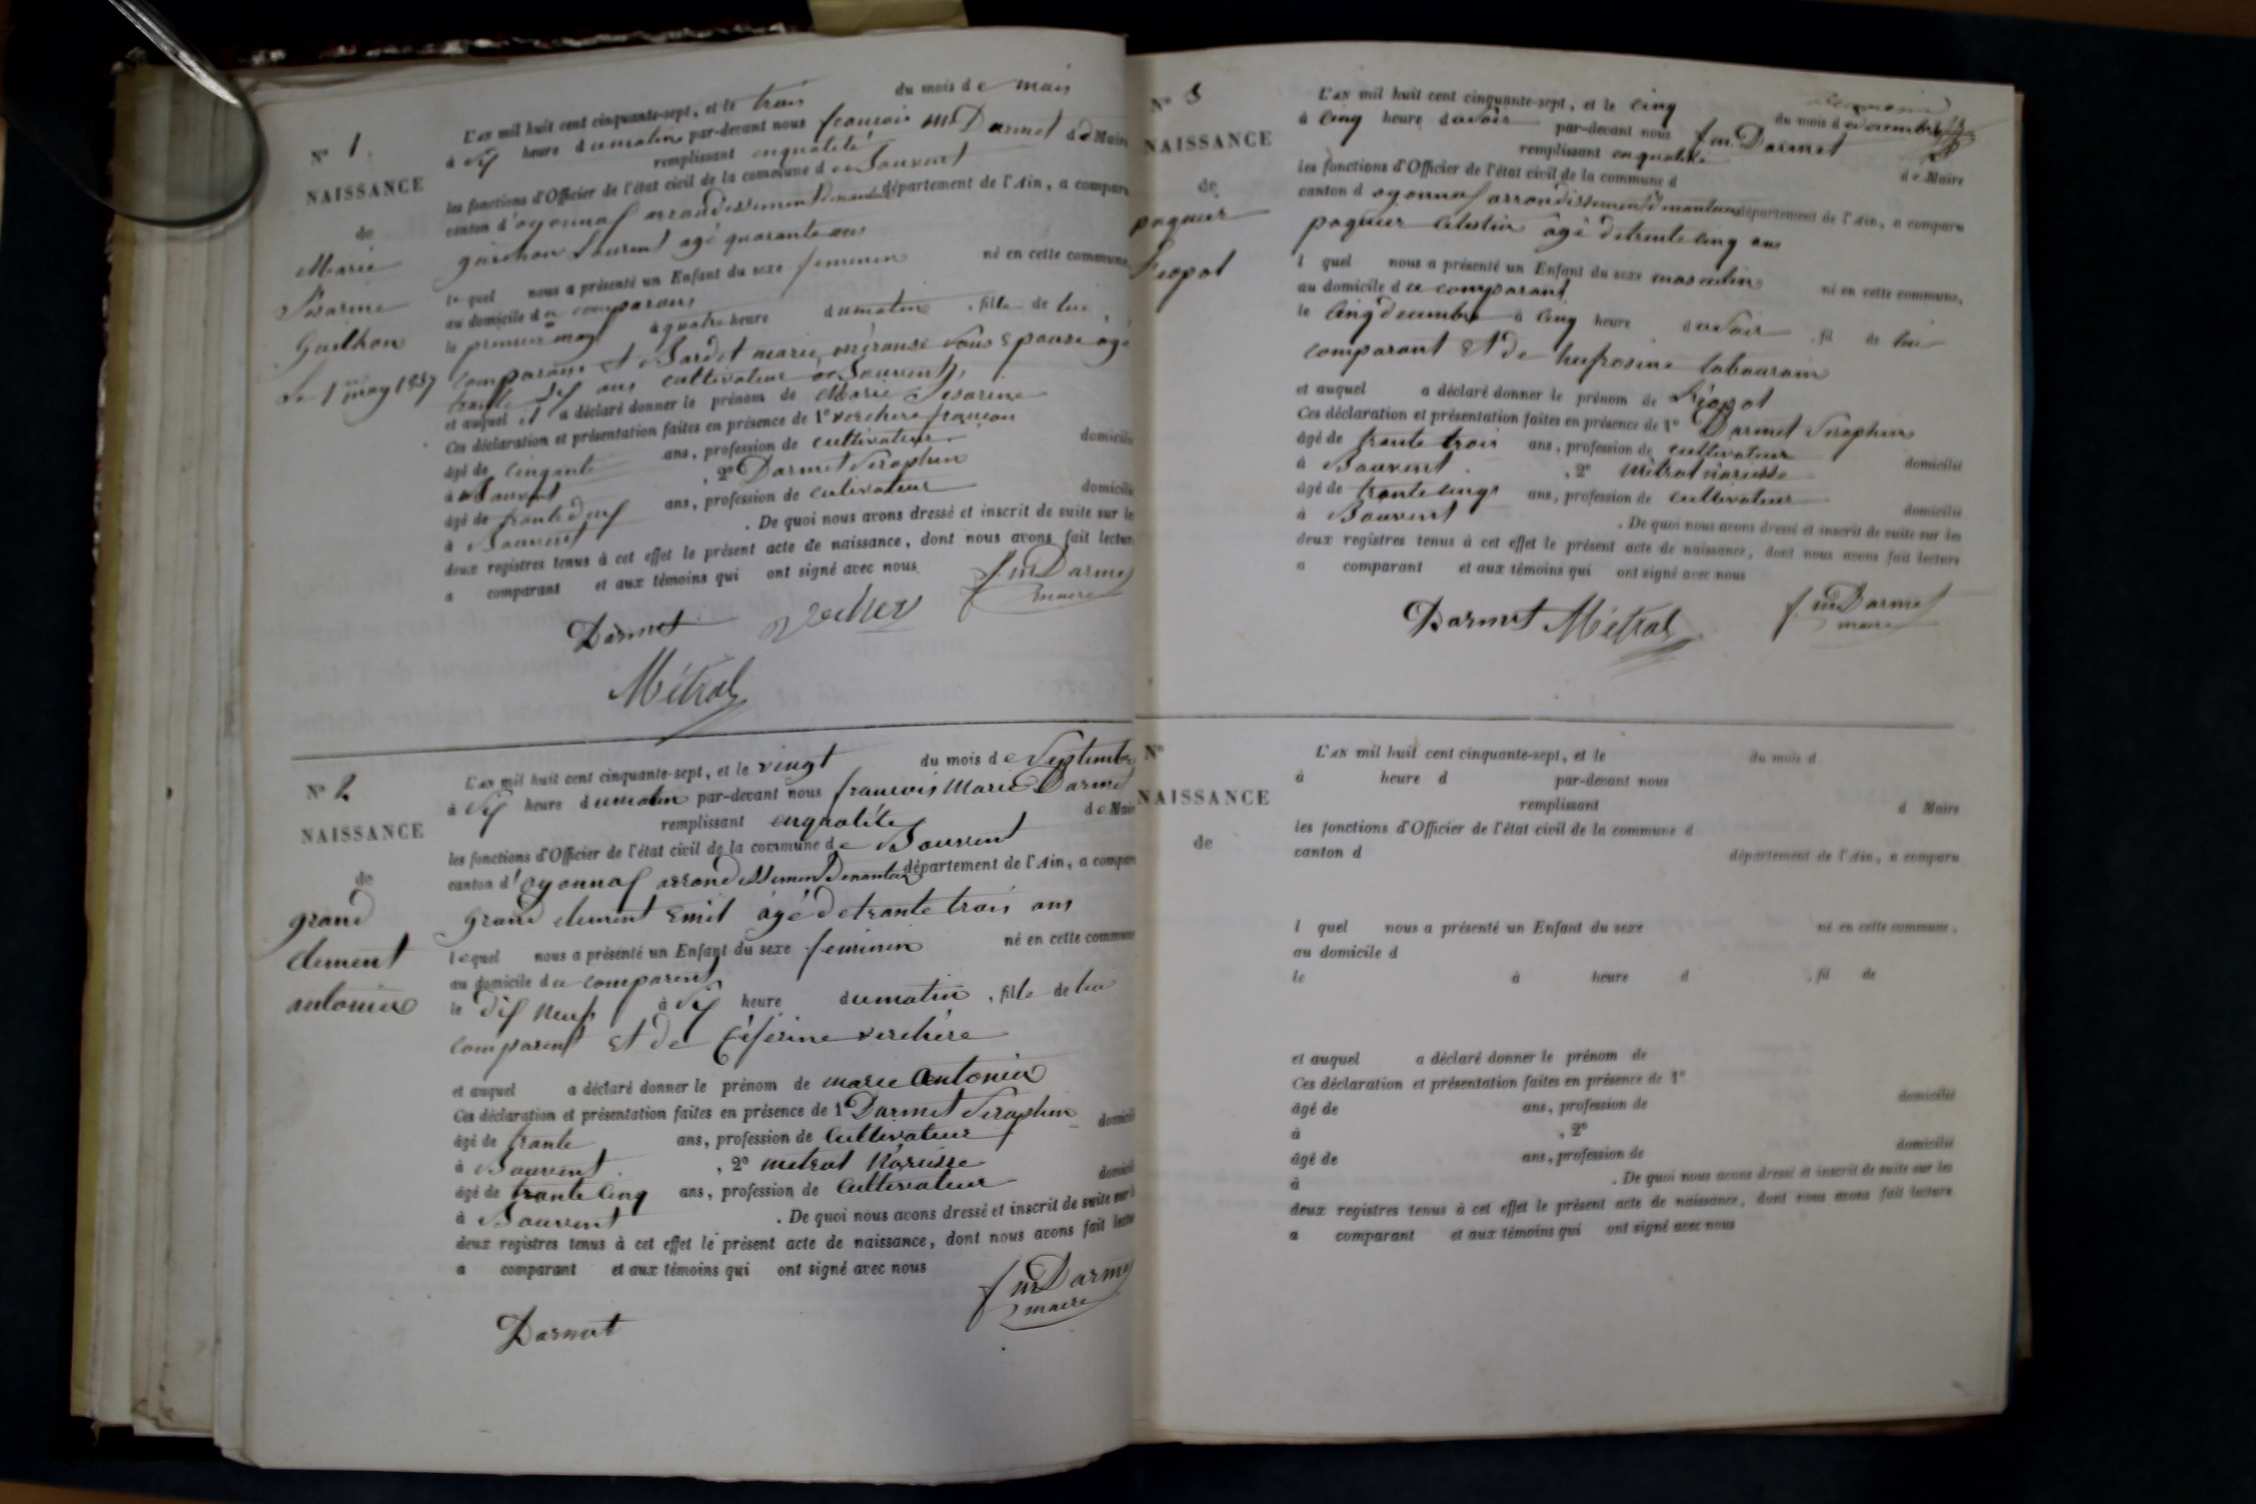 N° 1
NAISSANCE
de
Marie
Gaithon
Le 1 may 1857
L'AN mil huit cent cinquante-sept, et le trois du mois de mais
à six heure du matin par-devant nous francois m Darmet de Maire
remplissant enqualité
les fonctions d'Officier de l'état civil de la commune de Bouvent
canton d'oyonnax arrondissement département de l'Ain, a comparu
Laurent agé quarante ans
lequel nous a présenté un Enfant du sexe feminin né en cette commune,
au domicile du comparans
le premier may à quatre heure du matin , fille de lui
comparans et Bardet marie sous Epouse agé
trante six ans cultivateur Bouvent
et auquel a déclaré donner le prénom de Marie
Ces déclaration et présentation faites en présence de 1°
âgé de Cinquante ans, profession de cultivateur domicilié
à Bouvent , 2° Darmet Seraphin
âgé de trante ans, profession de cultivateur domicilié
à Bouvent . De quoi nous avons dressé et inscrit de suite sur le
deux registres tenus à cet effet le présent acte de naissance, dont nous avons fait lecture
a comparant et aux témoins qui ont signé avec nous
Darmet f. m Darmet
maire
Métral
N° 2
NAISSANCE
de
grand
clement
antonia
L'AN mil huit cent cinquante-sept, et le vingt du mois de Septembre
à six heure du matin par-devant nous francois Marie Darmet
remplissant enqualité de Maire
les fonctions d'Officier de l'état civil de la commune de Bouvent
canton d'oyonnax arrondissement Denantua département de l'Ain, a comparu
grand clement Emil âgé de trante trois ans
lequel nous a présenté un Enfant du sexe feminin né en cette commune
au domicile du comparent
le dix neuf à six heure du matin , fille de lui
comparent Et de verchère
et auquel a déclaré donner le prénom de marie Antonia
Ces déclaration et présentation faites en présence de 1° Darmet Seraphin
âgé de trante ans, profession de Cultivateur domicilié
à Bouvent , 2° metral Narcisse
âgé de trante Cinq ans, profession de Cultivateur domicilié
à Bouvent . De quoi nous avons dressé et inscrit de suite sur l
deux registres tenus à cet effet le présent acte de naissance, dont nous avons fait lecture
a comparant et aux témoins qui ont signé avec nous
f m Darmet
maire
Darmet
N° 3
NAISSANCE
de
paquier
Léopol
L'AN mil huit cent cinquante-sept, et le cinq du mois de decembre
à cinq heure du soir par-devant nous f m. Darmet
remplissant enqualité de Maire
les fonctions d'Officier de l'état civil de la commune d
canton d oyonnax arrondissement de nantua département de l'Ain, a comparu
paquier Celestin âgé de trente cinq ans
l quel nous a présenté un Enfant du sexe masculin né en cette commune,
au domicile du comparant
le Cinq decembre à cinq heure du soir , fil de lui
comparant Et de
et auquel a déclaré donner le prénom de Léopol
Ces déclaration et présentation faites en présence de 1° Darmet Seraphin
âgé de trante trois ans, profession de cultivateur domicilié
à Bouvent , 2° Métral narcisse
âgé de trante cinq ans, profession de cultivateur domicilié
à Bouvent . De quoi nous avons dressé et inscrit de suite sur les
deux registres tenus à cet effet le présent acte de naissance, dont nous avons fait lecture
a comparant et aux témoins qui ont signé avec nous
Darmet Métral f. m Darmet
maire
N°
NAISSANCE
de
L'AN mil huit cent cinquante-sept, et le du mois d
à heure d par-devant nous
remplissant d Maire
les fonctions d'Officier de l'état civil de la commune d
canton d département de l'Ain, a comparu
l quel nous a présenté un Enfant du sexe né en cette commune,
au domicile d
le à heure d , fil de
et auquel a déclaré donner le prénom de
Ces déclaration et présentation faites en présence de 1°
âgé de ans, profession de domicilié
à , 2°
âgé de ans, profession de domicilié
à . De quoi nous avons dressé et inscrit de suite sur les
deux registres tenus à cet effet le présent acte de naissance, dont nous avons fait lecture
a comparant et aux témoins qui ont signé avec nous